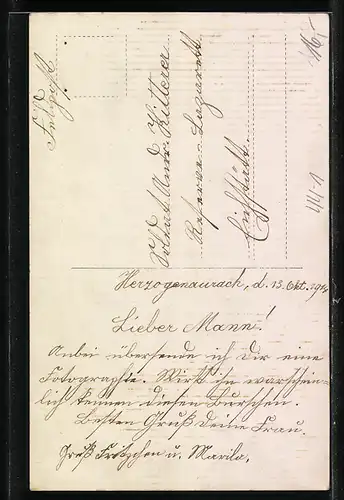 Feldpost
Soldat Andr. Kitterer
Reserve-Lazarett
Eichstätt.
Herzogenaurach, d. 15. Okt. 1914
Lieber Mann!
Anbei übersende ich Dir eine
Fotographie. Wirst ja warschein-
lich kennen diesen Burschen.
Besten Gruß Deine Frau.
Gruß Fritzchen u. Marila.